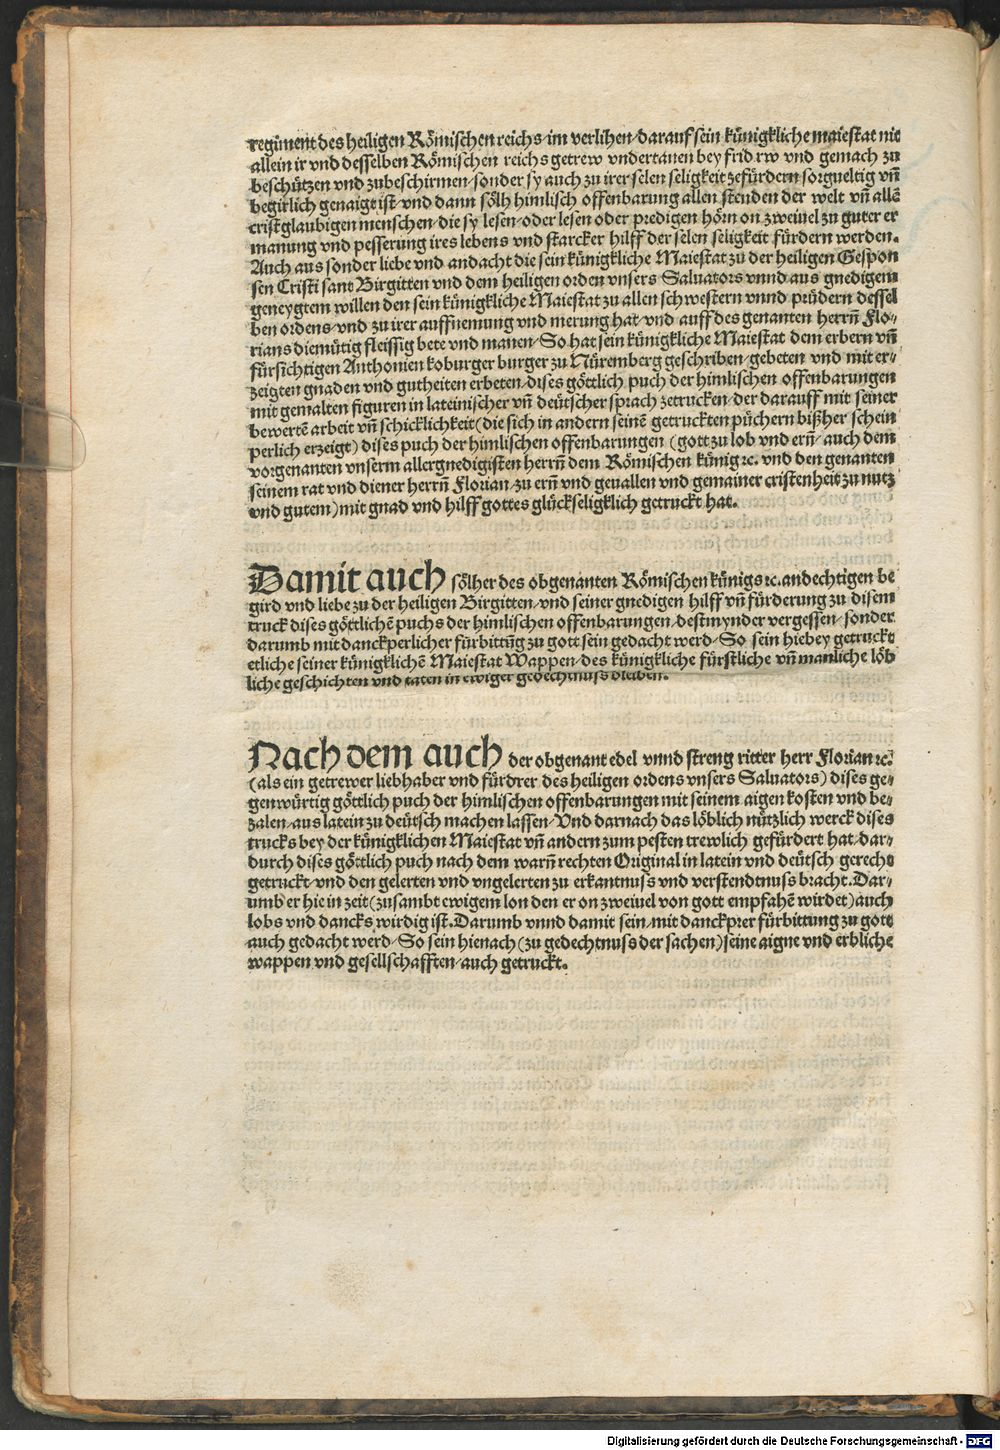 regiment des heiligen Römischen reichs im verlihen/darauf sein künigkliche maiestat nit
allein ir vnd desselben Römischen reichs getrew vndertanen bey frid rw vnd gemach zu
beschützen vnd zubeschirmen/sonder sy auch zu irer selen seligkeit zefürdern sorgueltig vñ
begirlich genaigt ist/vnd dann sölh himlisch offenbarung allen stenden der welt vñ allẽ
cristglaubigen menschen/die sy lesen/oder lesen oder predigen hörn on zweiuel zu guter er
manung vnd pesserung ires lebens vnd starcker hilff der selen seligkeit fürdern werden.
Auch aus sonder liebe vnd andacht die sein künigkliche Maiestat zu der heiligen Gespon
sen Cristi sant Birgitten vnd dem heiligen orden vnsers Saluators vnnd aus gnedigem
geneygtem willen den sein künigkliche Maiestat zu allen schwestern vnnd prüdern dessel
ben ordens/vnd zu irer auffnemung vnd merung hat/vnd auff des genanten herrñ Flo/
rians diemütig fleissig bete vnd manen/So hat sein künigkliche Maiestat dem erbern vñ
fürsichtigen Anthonien koburger burger zu Nüremberg geschriben/gebeten vnd mit er/
zeigten gnaden vnd gutheiten erbeten/dises göttlich puch der himlischen offenbarungen
mit gemalten figuren in lateinischer vñ deütscher sprach zetrucken/der darauff mit seiner
bewertẽ arbeit vñ schicklichkeit(die sich in andern seinẽ getruckten püchern bißher schein
perlich erzeigt) dises puch der himlischen offenbarungen (gott zu lob vnd erñ/auch dem
vorgenanten vnserm allergnedigisten herrñ dem Römischen künig ꝛc. vnd den genanten
seinem rat vnd diener herrñ Florian/zu erñ vnd geuallen vnd gemainer cristenheit zu nutz
vnd gutem)mit gnad vnd hilff gottes glückseligklich getruckt hat.
Damit auch sölher des obgenanten Römischen künigs ꝛc. andechtigen be
gird vnd liebe zu der heiligen Birgitten/vnd seiner gnedigen hilff vñ fürderung zu disem
truck dises göttlichẽ puchs der himlischen offenbarungen/destmynder vergessen/sonder
darumb mit danckperlicher fürbittũg zu gott sein gedacht werd/So sein hiebey getruckt
etliche seiner künigklichẽ Maiestat Wappen/des künigkliche fürstliche vñ manliche löb
liche geschichten vnd taten in ewiger gedechtnuss bleiben.
Nach dem auch der obgenant edel vnnd streng ritter herr Florian ꝛc.
(als ein getrewer liebhaber vnd fürdrer des heiligen ordens vnsers Saluators) dises ge/
genwürtig göttlich puch der himlischen offenbarungen mit seinem aigen kosten vnd be/
zalen/aus latein zu deütsch machen lassen/Vnd darnach das löblich nützlich werck dises
trucks bey der künigklichen Maiestat vñ andern zum pesten trewlich gefürdert hat/dar/
durch dises göttlich puch nach dem warñ rechten Original in latein vnd deütsch gerecht
getruckt/vnd den gelerten vnd vngelerten zu erkantnuss vnd verstendtnuss bracht. Dar/
umb er hie in zeit(zusambt ewigem lon den er on zweiuel von gott empfahẽ wirdet)auch
lobs vnd dancks wirdig ist. Darumb vnnd damit sein/mit danckprer fürbittung zu gott
auch gedacht werd/So sein hienach(zu gedechtnuss der sachen)seine aigne vnd erbliche
wappen vnd gesellschafften/auch getruckt.
Digitalisierung gefördert durch die Deutsche Forschungsgemeinschaft - DFG